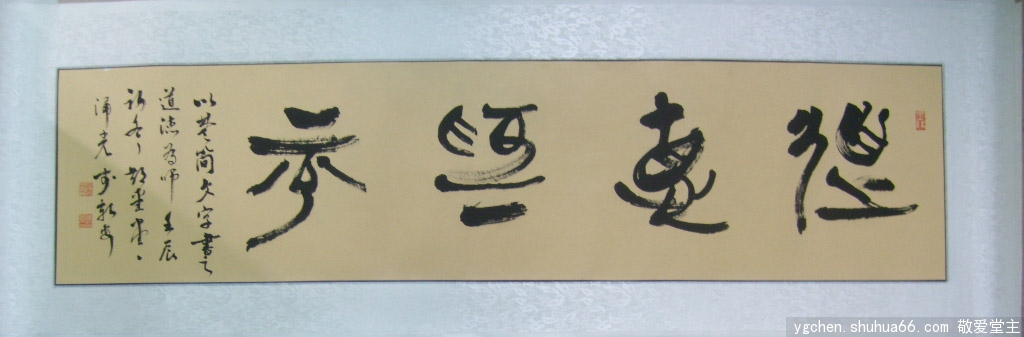 道悳為帀
以楚简文字書之
道德為師 壬辰
涌光
ygchen.shuhua66.com 敬爱堂主